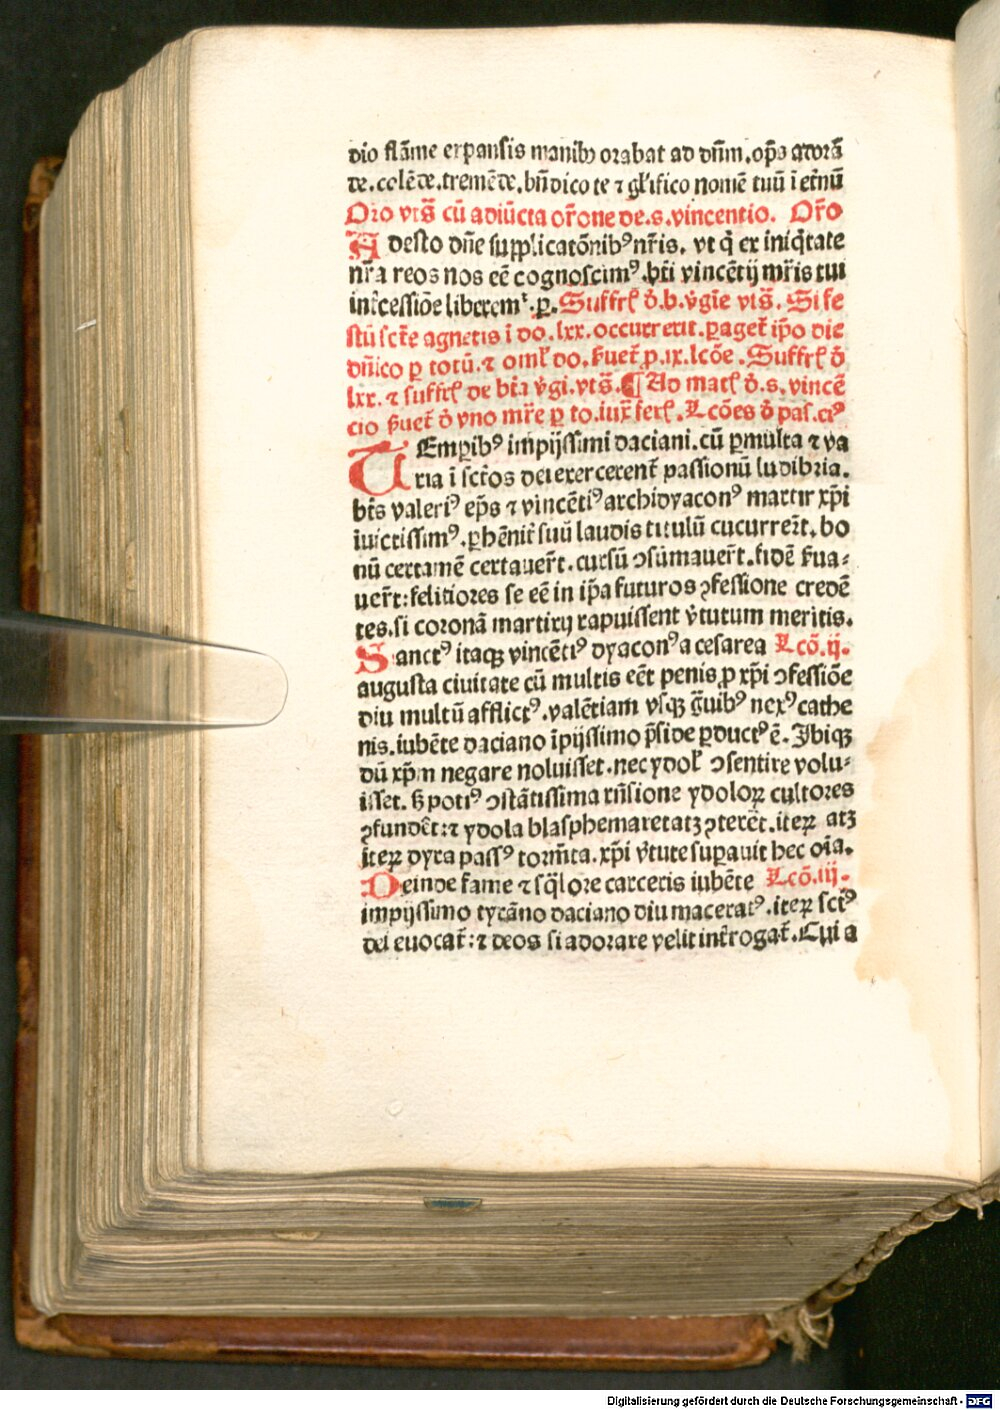 dio flāme expansis manibꝰ orabat ad dn̄m. op̄s adorā
de. colēde. tremēde. bn̄dico te ⁊ gl'ifico nomē tuū ī et̄nū
Oīo vts̄ cū adiūcta or̄one de. s. vincentio. Or̄o
Adesto dn̄e supplicatōnibꝰ nr̄is. vt q̄ ex iniq̄tate
nr̄a reos nos eē cognoscimꝰ. bt̄i vincētij mr̄is tui
int̄cessiōe liberemᷣ. ꝑ. Suffrꝭ ō. b. v̄gīe vts̄. Si fe
stū sct̄e agnetis ī do. lxx. occurrerit. ꝑaget̄ ip̄o die
dn̄ico ꝑ totū. ⁊ oml' do. ẜuet̄ ꝓ. ix. lcōe. Suffrꝭ ō
lxx. ⁊ suffrꝭ de bt̄a v̄gi. vts̄. ¶ Ad matꝭ ō. s. vincē
cio ẜuet̄ ō vno mr̄e ꝑ to. iux̄ ferꝭ. Lcōes ō pas. ciꝰ
TEmꝑibꝰ impijssimi daciani. cū ꝑmulta ⁊ va
ria ī sct̄os dei exercerent̄ passionū ludibria.
bt̄s valeriꝰ ep̄s ⁊ vincētiꝰ archidyaconꝰ martir xp̄i
īuictissimꝰ. ꝑhēnit̄ suū laudis titulū cucurrer̄t. bo
nū certamē certauer̄t. cursū ꝯsūmauer̄t. fidē ẜua⸗
uer̄t: felitiores se eē in ip̄a futuros ꝯfessione credē
tes. si coronā martirij rapuissent v̄tutum meritis.
Sanctꝰ itaqꝫ vincētiꝰ dyaconꝰ a cesarea Lcō. ij.
augusta ciuitate cū multis eēt penis ꝓ xp̄i ꝯfessiōe
diu multū afflictꝰ. valētiam vsqꝫ ḡuibꝰ nexꝰ cathe
nis. iubēte daciano īpijssimo p̄side ꝑductꝰ ē. Ibiqꝫ
dū xp̄m negare noluisset. nec ydol' ꝯsentire volu⸗
isset. ẞ potiꝰ ꝯstātissima rn̄sione ydoloꝝ cultores
ꝯfundēt: ⁊ ydola blasphemaret atꝫ ꝯterēt. iteꝝ atꝫ
iteꝝ dyra passꝰ torm̄ta. xp̄i v̄tute suꝑauit hec oīa.
Deinde fame ⁊ sq̄lore carceris iubēte Lcō. iij.
impijssimo tyrāno daciano diu maceratꝰ. iteꝝ sct̄ꝰ
dei euocat̄: ⁊ deos si adorare velit int̄rogat̄. Cui a
Digitalisierung gefördert durch die Deutsche Forschungsgemeinschaft - DFG